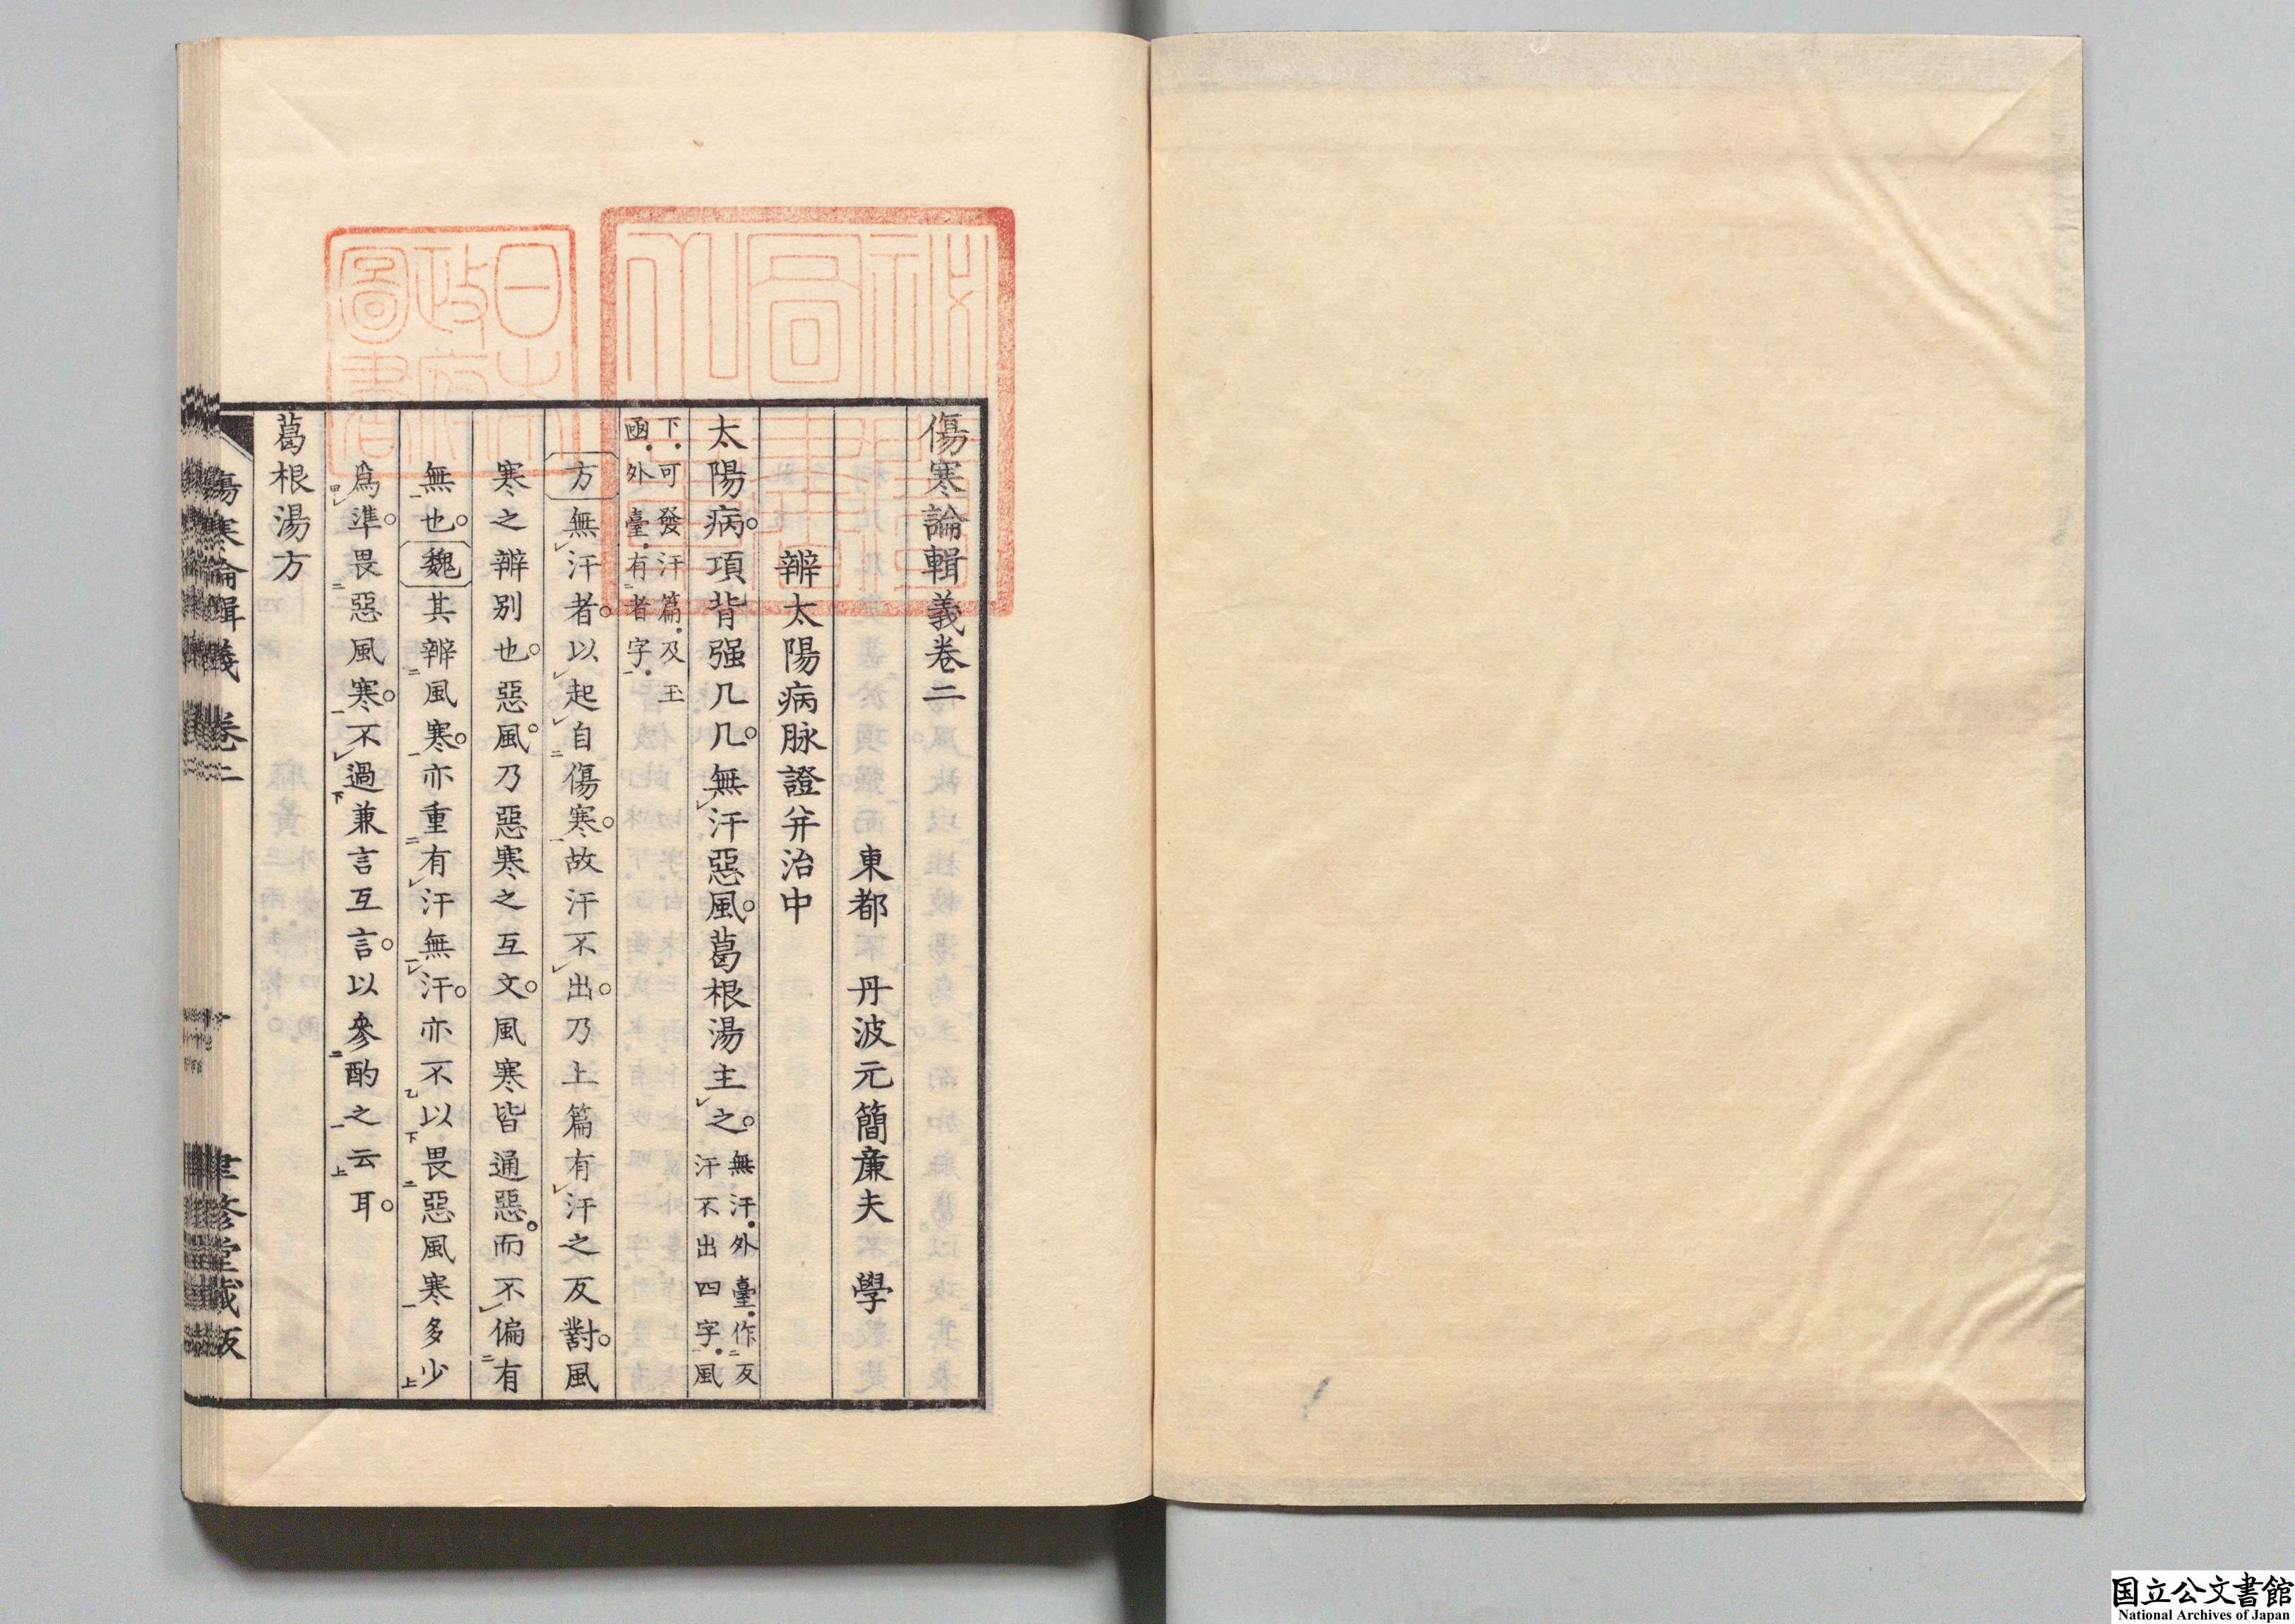 傷寒論輯義卷二
東都 丹波元簡廉夫 學
辨太陽病脉證并治中
太陽病。項背强几几。無汗惡風。葛根湯主之。無汗。外臺。作反
汗不出四字。風
下。可發汗篇。及玉
函。外臺。有者字。
方無汗者。以起自傷寒。故汗不出。乃上篇有汗之反對。風
寒之辨别也。惡風。乃惡寒之互文。風寒皆通惡。而不偏有
無也。魏其辨風寒。亦重有汗無汗。亦不以畏惡風寒多少
爲準。畏惡風寒。不過兼言互言。以參酌之云耳。
葛根湯方
傷寒論輯義 卷二
聿修堂藏版
日本
政府
圖書
国立公文書館
National Archives of Japan